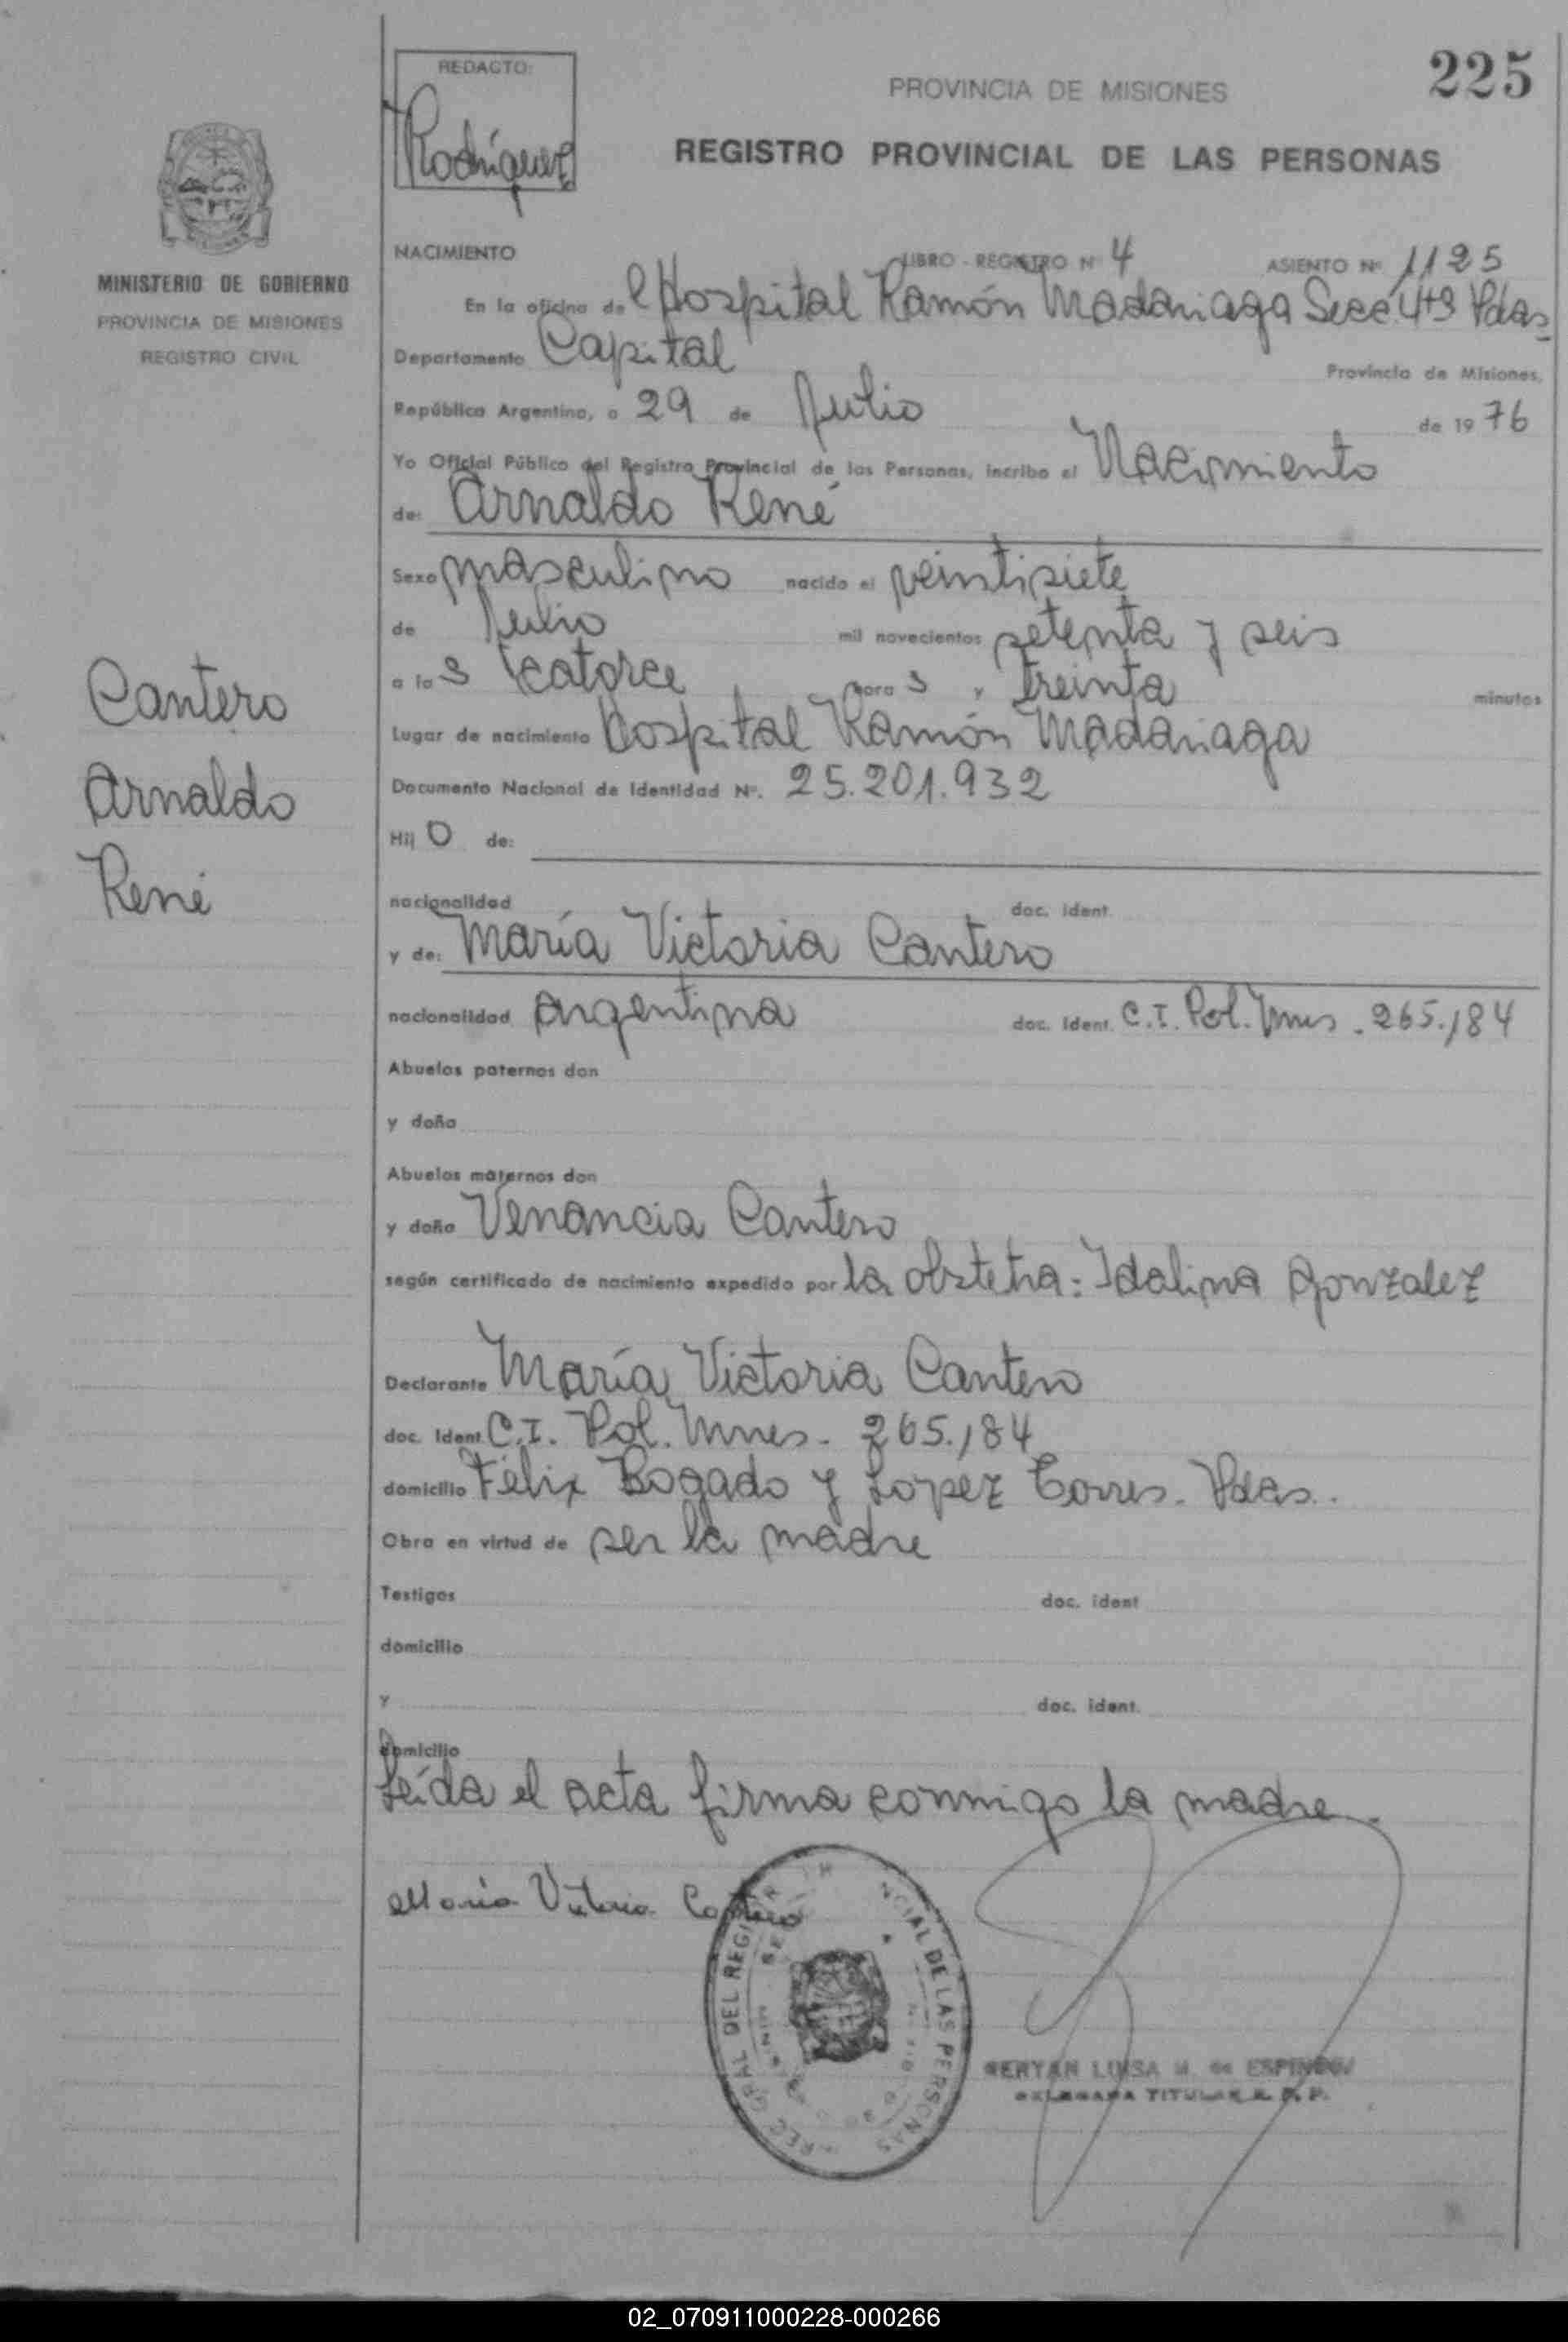 225
REDACTO:
Rodríguez
PROVINCIA DE MISIONES
REGISTRO PROVINCIAL DE LAS PERSONAS
MINISTERIO DE GOBIERNO
PROVINCIA DE MISIONES
REGISTRO CIVIL
Cantero
Arnaldo
René
NACIMIENTO LIBRO - REGISTRO Nº 4 ASIENTO Nº 1125
En la oficina del Hospital Ramón Madariaga Secc. Pdas
Departamento Capital Provincia de Misiones,
República Argentina, a 29 de Julio de 1976
Yo Oficial Público del Registro Provincial de las Personas, incribo el Nacimiento
de: Arnaldo René
Sexo masculino nacido el veintisiete
de Julio mil novecientos setenta y seis
a las catorce horas y treinta minutos
Lugar de nacimiento Hospital Ramón Madariaga
Documento Nacional de Identidad Nº. 25.201.932
Hijo de:
nacionalidad doc. ident.
y de: María Victoria Cantero
nacionalidad Argentina doc. ident. C.I. Pol. Mnes. 265.184
Abuelos paternos don
y doña
Abuelos maternos don
y doña Venancia Cantero
según certificado de nacimiento expedido por la obstetra: Idalina Gonzalez
Declarante María Victoria Cantero
doc. Ident. C.I. Pol. Mnes. 265.184
domicilio Félix Bogado y Lopez Torres. Pdas.
Obra en virtud de ser la madre
Testigos doc. ident
domicilio
y doc. ident.
domicilio
Leída el acta firma conmigo la madre.
María Victoria Cantero
DEL REGI NCIAL DE LAS PERSONAS
LUISA M. de ESPINDO
TITULAR R. P. P.
02_070911000228-000266